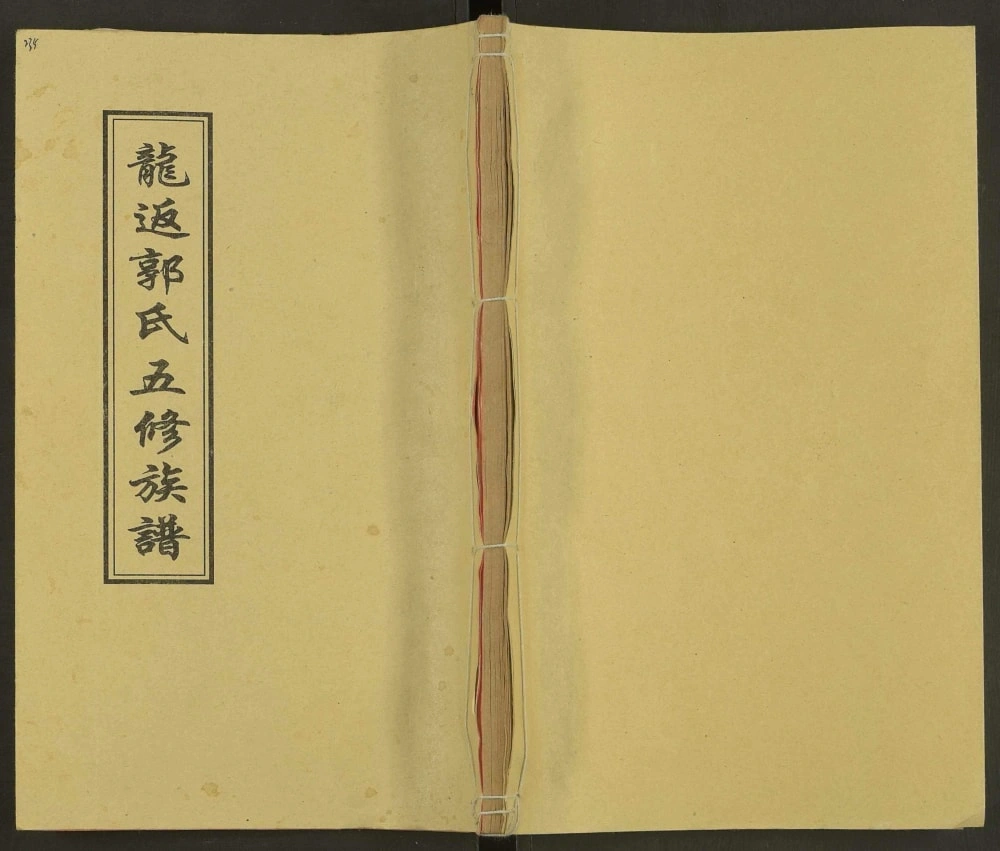 234
龍返郭氏五修族譜